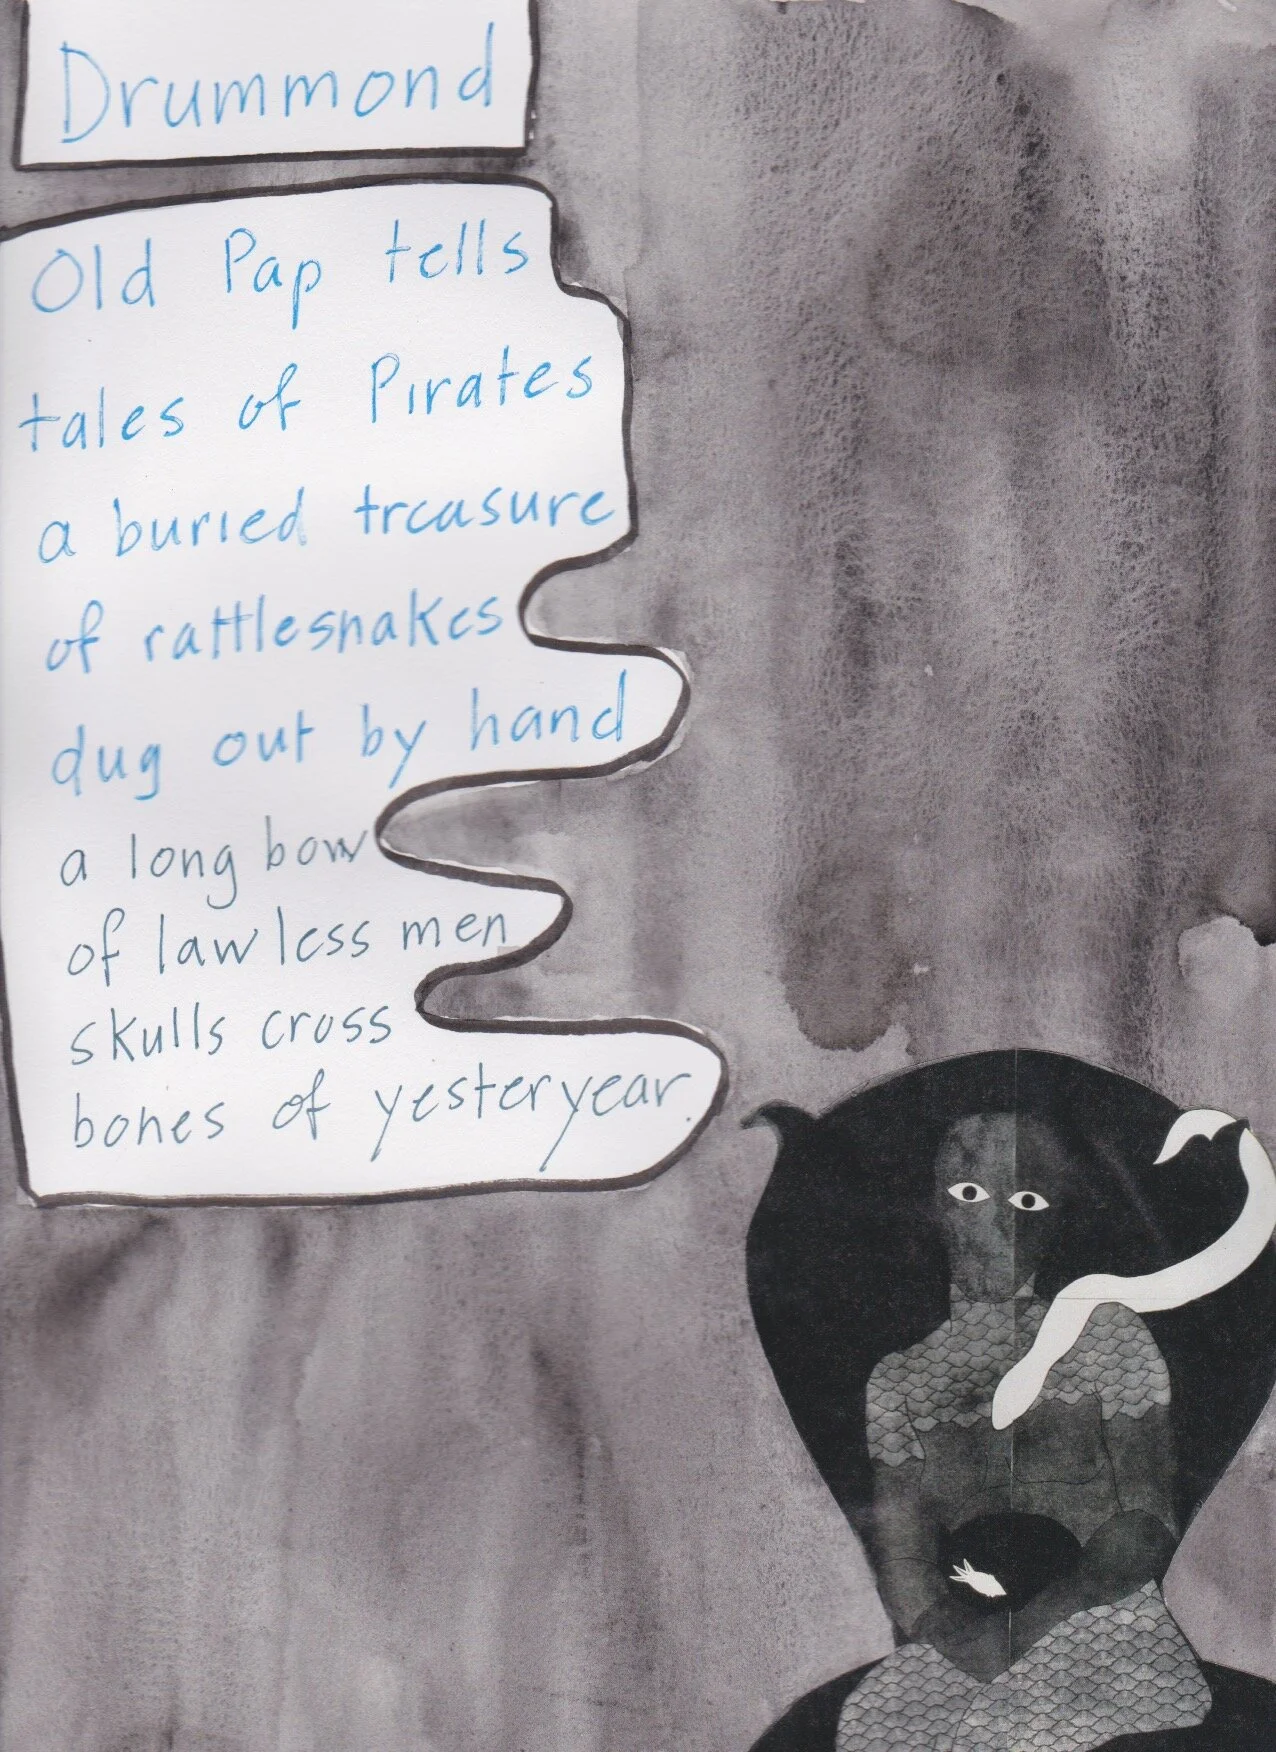 Drummond
Old Pap tells
tales of Pirates
a buried treasure
of rattlesnakes
dug out by hand
a long bow
of lawless men
skulls cross
bones of yesteryear.